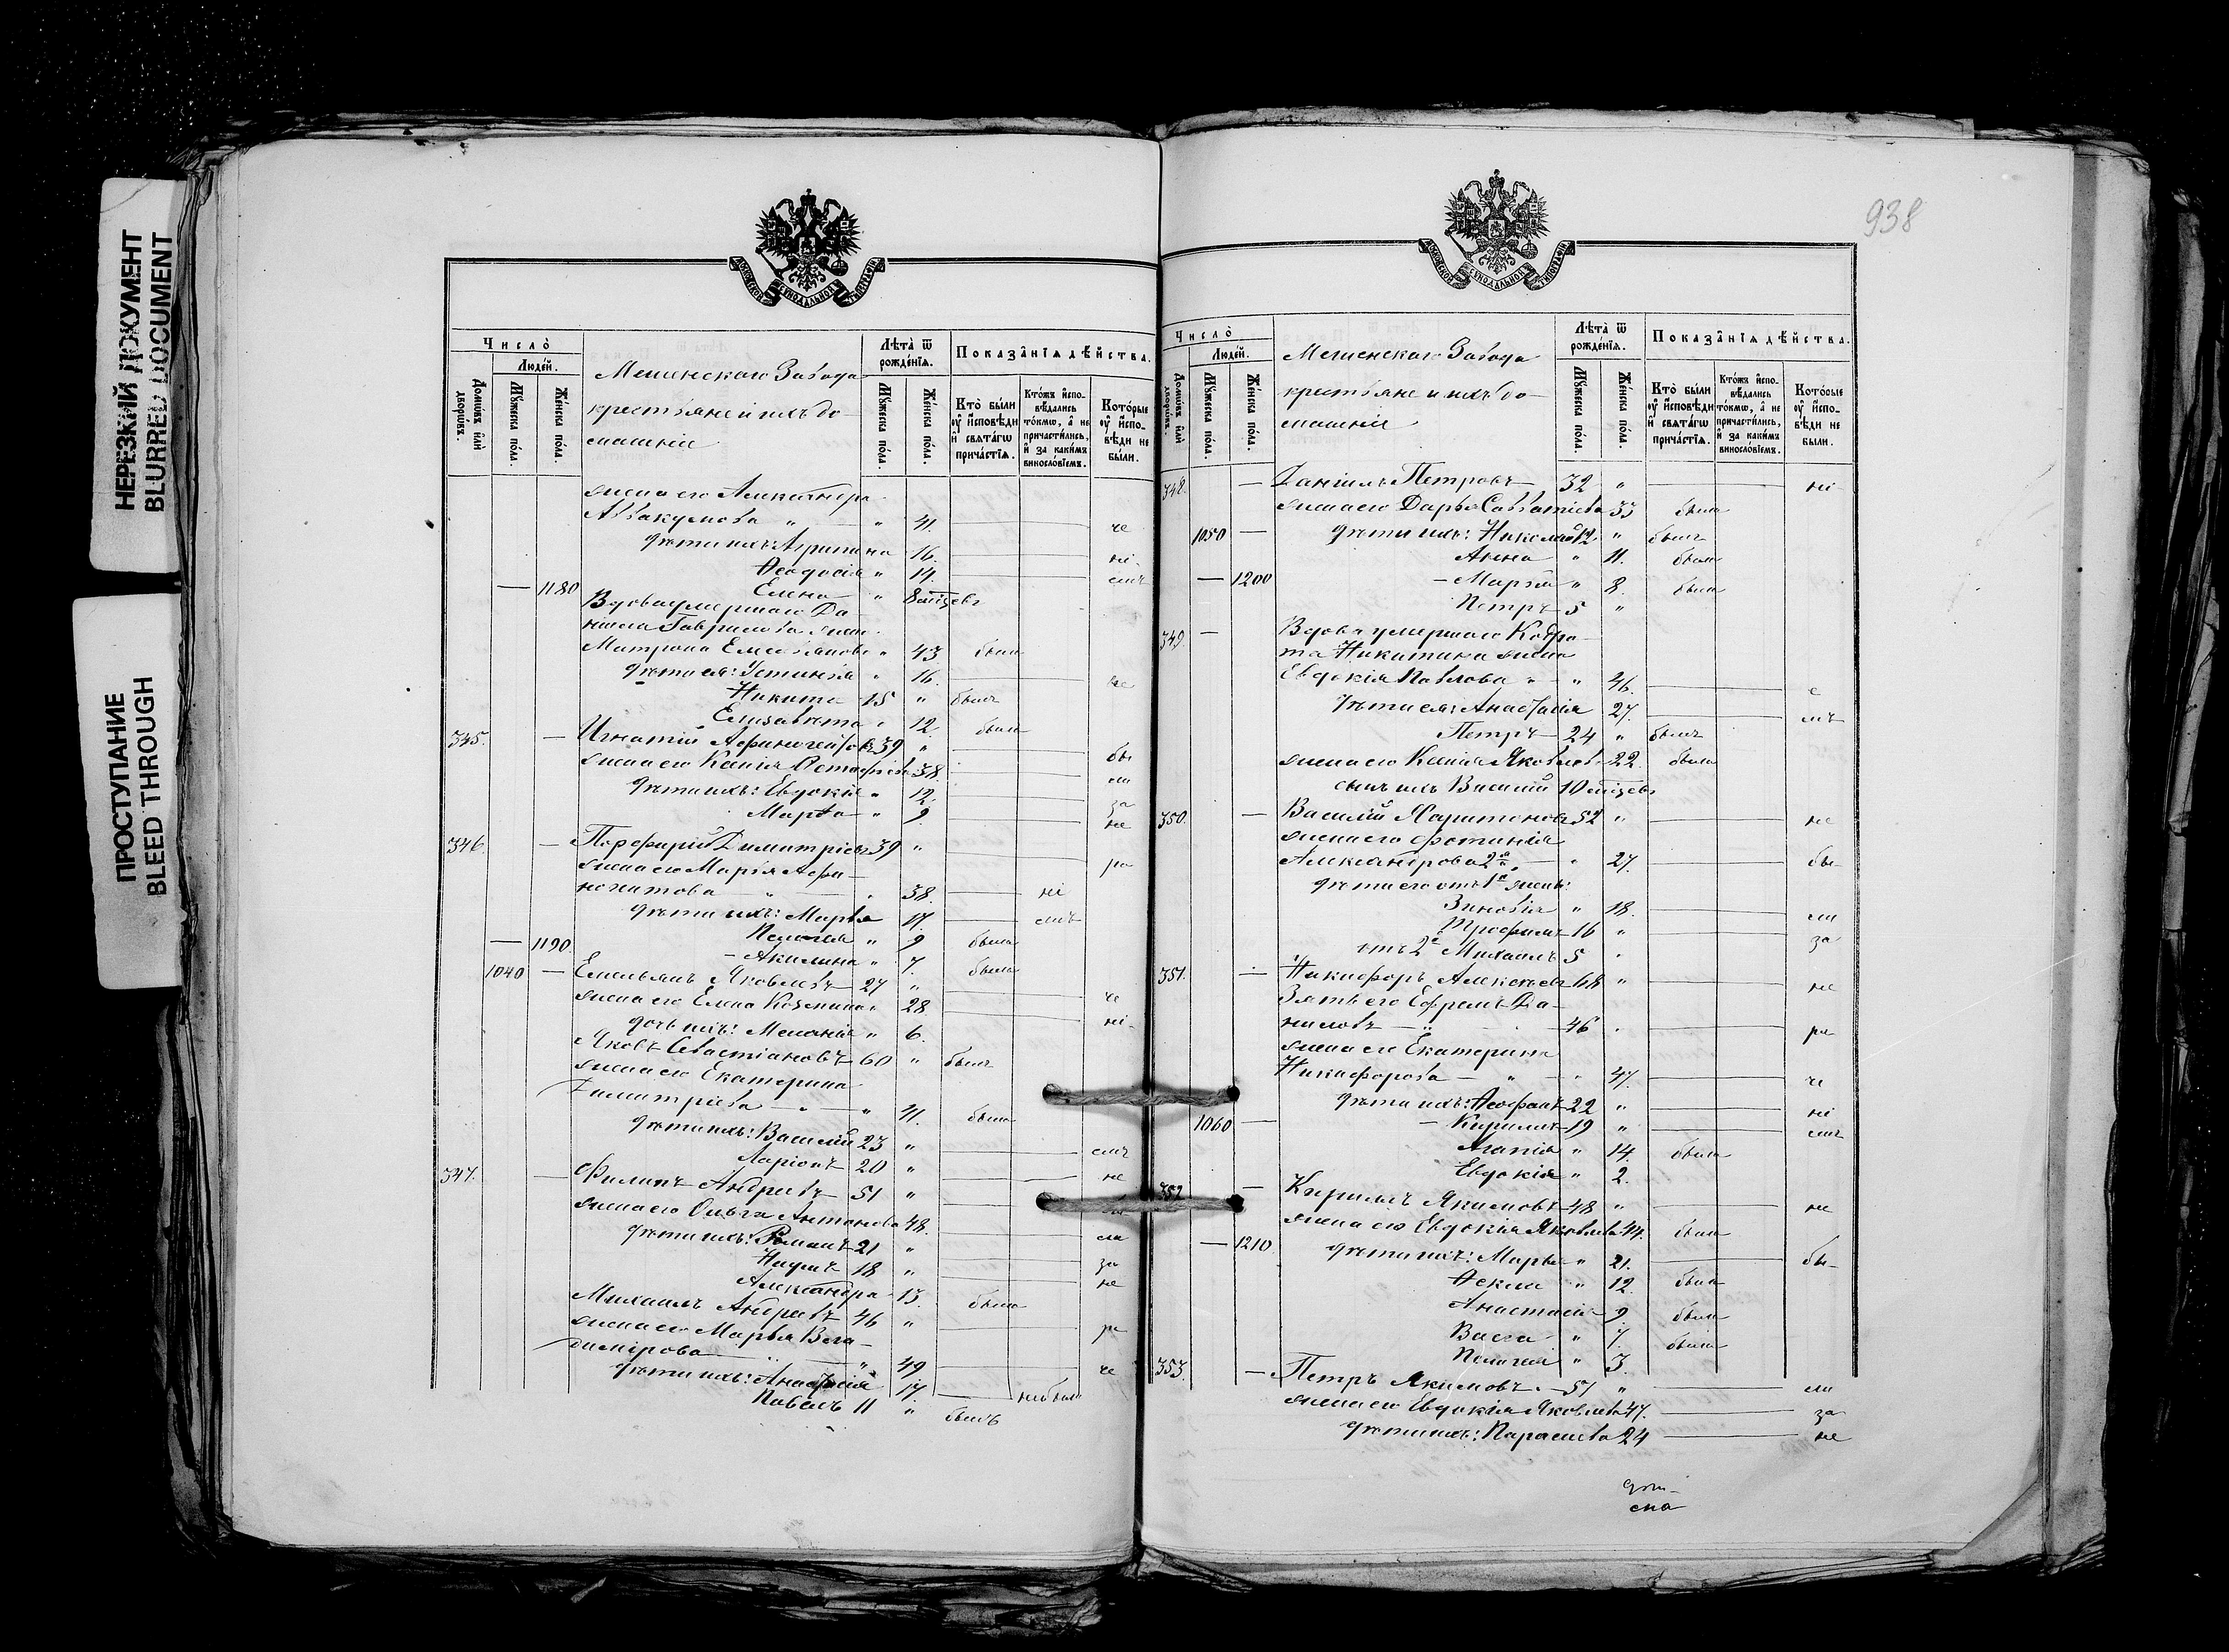 НЕРЕЗКИЙ ДОКУМЕНТ
BLURRED DOCUMENT
ПРОСТУПАНИЕ
BLEED THROUGH
Число̀
Люде́й.
Домѡ́въ и҆лѝ дворѡ́въ.
Мꙋ́жеска по́ла.
Же́нска по́ла.
завода
крестьяне и ихъ до-
машніе
Лѣта̀ ѿ рожде́нїѧ.
Мꙋ́жеска по́ла.
Же́нска по́ла.
Показа̑нїѧ дѣ́йства.
Кто̀ бы́ли ᲂу҆ и҆сповѣди и҆ свѧта́гѡ прича́стїѧ.
Кто́жъ и҆спо-вѣдались то́кмѡ, а҆ не причасти́лись, и҆ за каки́мъ винословїемъ.
Кото́рые ᲂу҆ и҆спо-вѣди не бы́ли.
жена его Александра
Аввакумова " — " 41. не
дѣти ихъ: Агрипина 16. ні-
Ѳеодосія " 14. емъ
— 1180 Елена " 8 мѣсяцевъ
Вдова умершаго Да-
ніила Гаврилова жена
Матрона Емельянова " 43 была
дѣти ея: Устинія " 16. не
Никита — 15 " былъ
Елизавета " 12. была
345. — Игнатій 39 " бы
жена его Ксенія 38. ли
дѣти ихъ: Евдокія " 12. за
Марѳа — " 9. не
346. — Порфирій Димитріевъ 39 " ра
жена его Марія
38. ні
дѣти ихъ: Марья 17. емъ
— 1190. Пелагея " 9 была
- Акилина " 7. была
1040 — Емельянъ Яковлевъ — 27 " не
жена его Елена Козмина " 28 ні-
дочь ихъ: Меланія " 6.
Яковъ Севастіановъ — 60 " былъ
жена его Екатерина
Димитріева — " — " 41. была
дѣти ихъ: Василій 23 " емъ
Ларіонъ — 20 " не
347. — Филипъ Андреевъ — 51 "
жена его Ольга Антонова 48. ли
дѣти ихъ: Романъ — 21 " за
Наумъ 18 " не
Александра 13. была
Михаилъ Андреевъ 46 " ра
жена его Марья Вла-
димірова " 49 че
дѣти ихъ: Анастасія 17. не был
Павелъ 11 " былъ
938
Число̀
Люде́й.
Домѡ́въ и҆лѝ дворѡ́въ.
Мꙋ́жеска по́ла.
Же́нска по́ла.
завода
крестьяне и ихъ до-
машніе
Лѣта̀ ѿ рожде́нїѧ.
Мꙋ́жеска по́ла.
Же́нска по́ла.
Показа̑нїѧ дѣ́йства.
Кто̀ бы́ли ᲂу҆ и҆сповѣди и҆ свѧта́гѡ прича́стїѧ.
Кто́жъ и҆спо-вѣдались то́кмѡ, а҆ не причасти́лись, и҆ за каки́мъ винословїемъ.
Кото́рые ᲂу҆ и҆спо-вѣди не бы́ли.
348. — Даніилъ Петровъ — 32 " ні
жена его Дарья Савватіева 33 была
1050 — дѣти ихъ: Николай 12 " былъ
Анна " 11. была
— 1200 - Марѳа " 8. была
Петръ — 5 "
349. — Вдова умершаго Кодра-
та Никитина жена
Евдокія Павлова " - " 46. е
дѣти ея: Анастасія 27. мъ
Петръ — 24 " былъ
жена его Ксенія Яковлева 22. была
сынъ ихъ Василій 10 мѣсяцевъ
350. — Василій Харитоновъ 52 " не
жена его Фотинія
Александрова 2я " 27. бы-
дѣти его отъ 1й жены:
Зиновія " 18. ли
Трофимъ — 16 " за
отъ 2й Михаилъ 5
351. — Никифоръ Алексѣевъ 68 " не
Зять его Ефремъ Да-
ниловъ — " 46 ра
жена его Екатерина
Никифорова — " — " 47. че
дѣти ихъ: Ѳеофанъ 22 " ні
1060 — - Кирилъ — 19 " емъ
Агапія " 14. была
Евдокія " 2.
352. — Кирилъ Якимовъ 48 " не
жена его Евдокія Яковлева 44. была
— 1210 дѣти ихъ: Марья " 21. бы-
Ѳекла " 12. была
Анастасія 9 была
Васса " 7. была
Пелагія " 3.
353. — Петръ Якимовъ. — 51 " ли
жена его Евдокія Яковлева 47. за
дѣти ихъ: Параскева 24 не